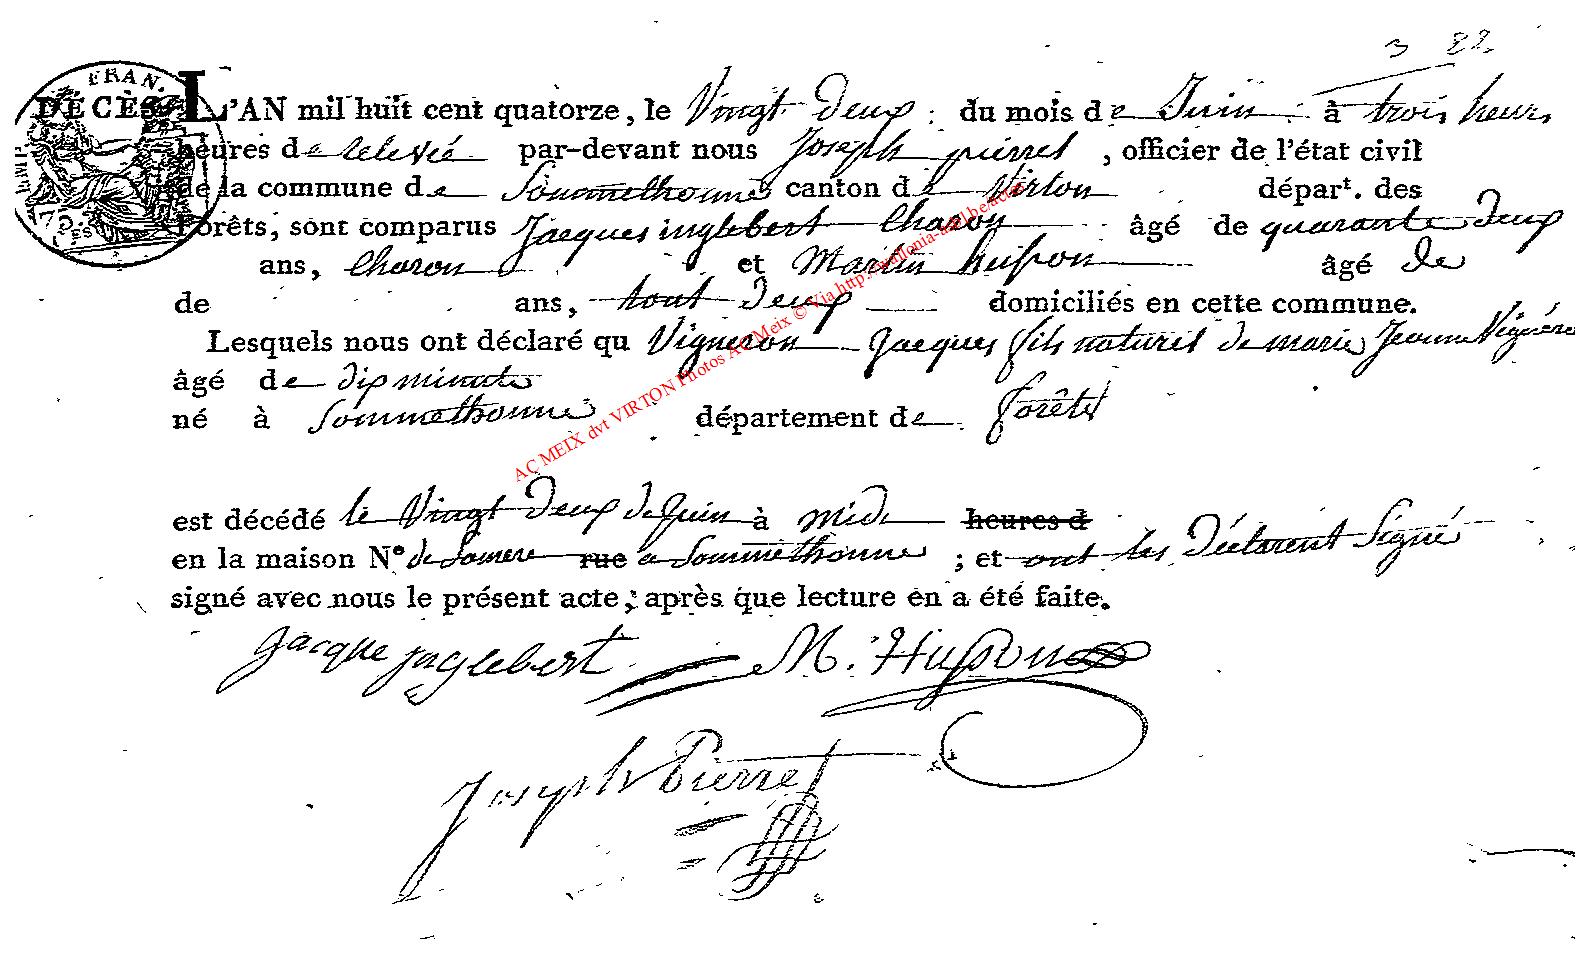 3 22
EMPI FRAN.
75 CES
DÉCÈS L'AN mil huit cent quatorze, le Vingt Deux du mois de Juin à trois heurs
heures de relevée par-devant nous Joseph pierret, officier de l'état civil
de la commune de Sommethonne canton de Virton départ. des
Forêts, sont comparus Jacques inglebert Charon âgé de quarante Deux
ans, Charon et Martin husson âgé de
de ans, tout Deux domiciliés en cette commune.
Lesquels nous ont déclaré qu Vigneron Jacques fils naturel de marie Jeanne Vignero
âgé de dix minute
né à Sommethonne département de forêts
est décédé le Vingt Deux de Juin à midi heures d
en la maison N° de Samere rue a Sommethonne ; et ont les Déclarent Signé
signé avec nous le présent acte, après que lecture en a été faite.
Jacque jnglebert M. Husson
Joseph Pierret
AC MEIX dvt VIRTON Photos AC Meix © Via http://wallonia-asbl.be/actes